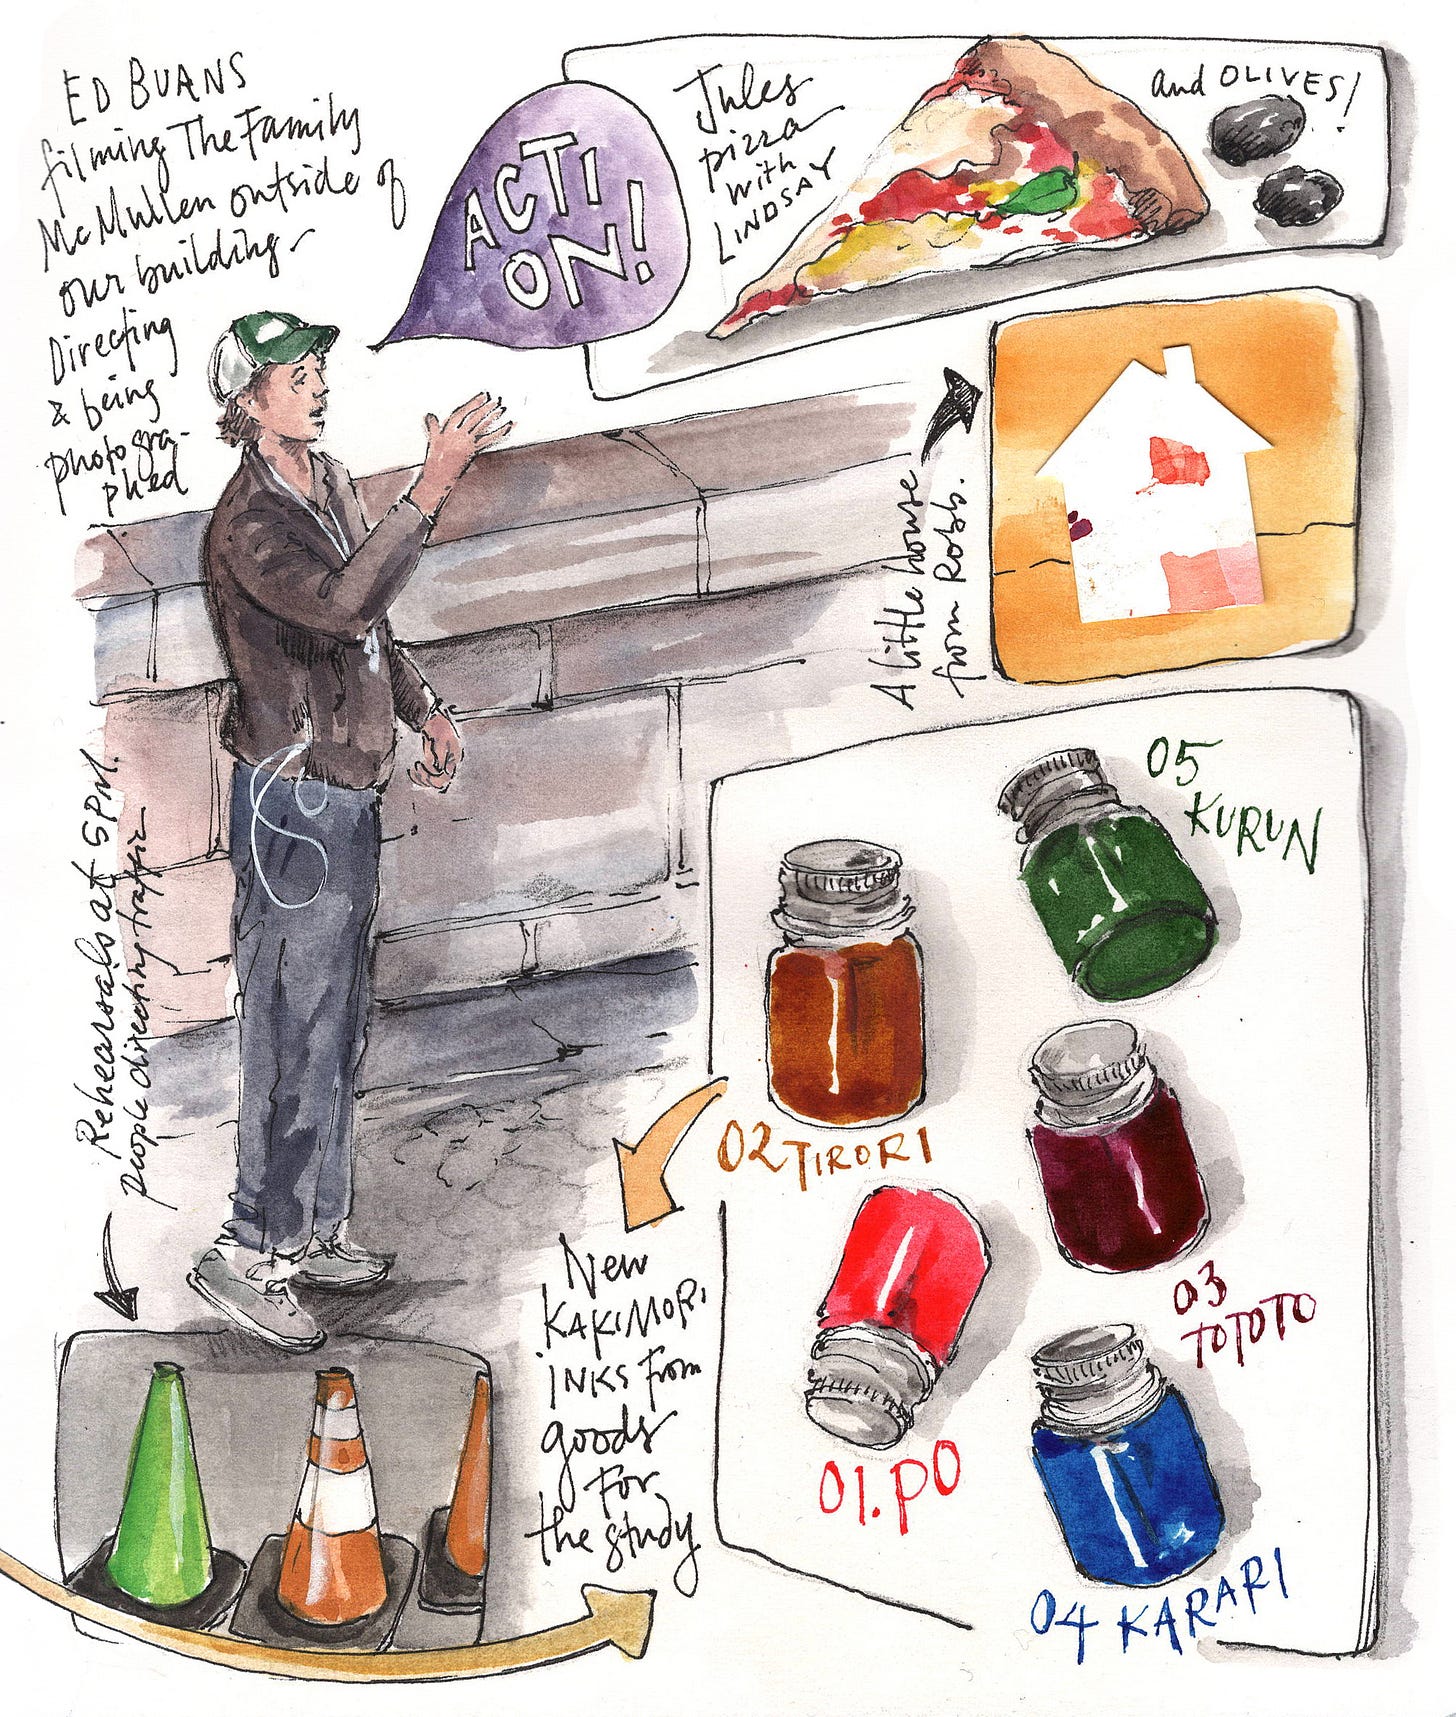 ED BURNS
filming The Family
McMullen outside of
our building-
Directing
& being
photogra-
phed
ACTI
ON!
Jules
pizza
with
LINDSAY
and OLIVES!
A little house
from Robb.
Rehearsals at 5PM.
people directing traffic
05
KURUN
02 TIRORI
03
TOTOTO
01. PO
04 KARARI
New
KAKIMORI
INKS from
goods
FOR
the study